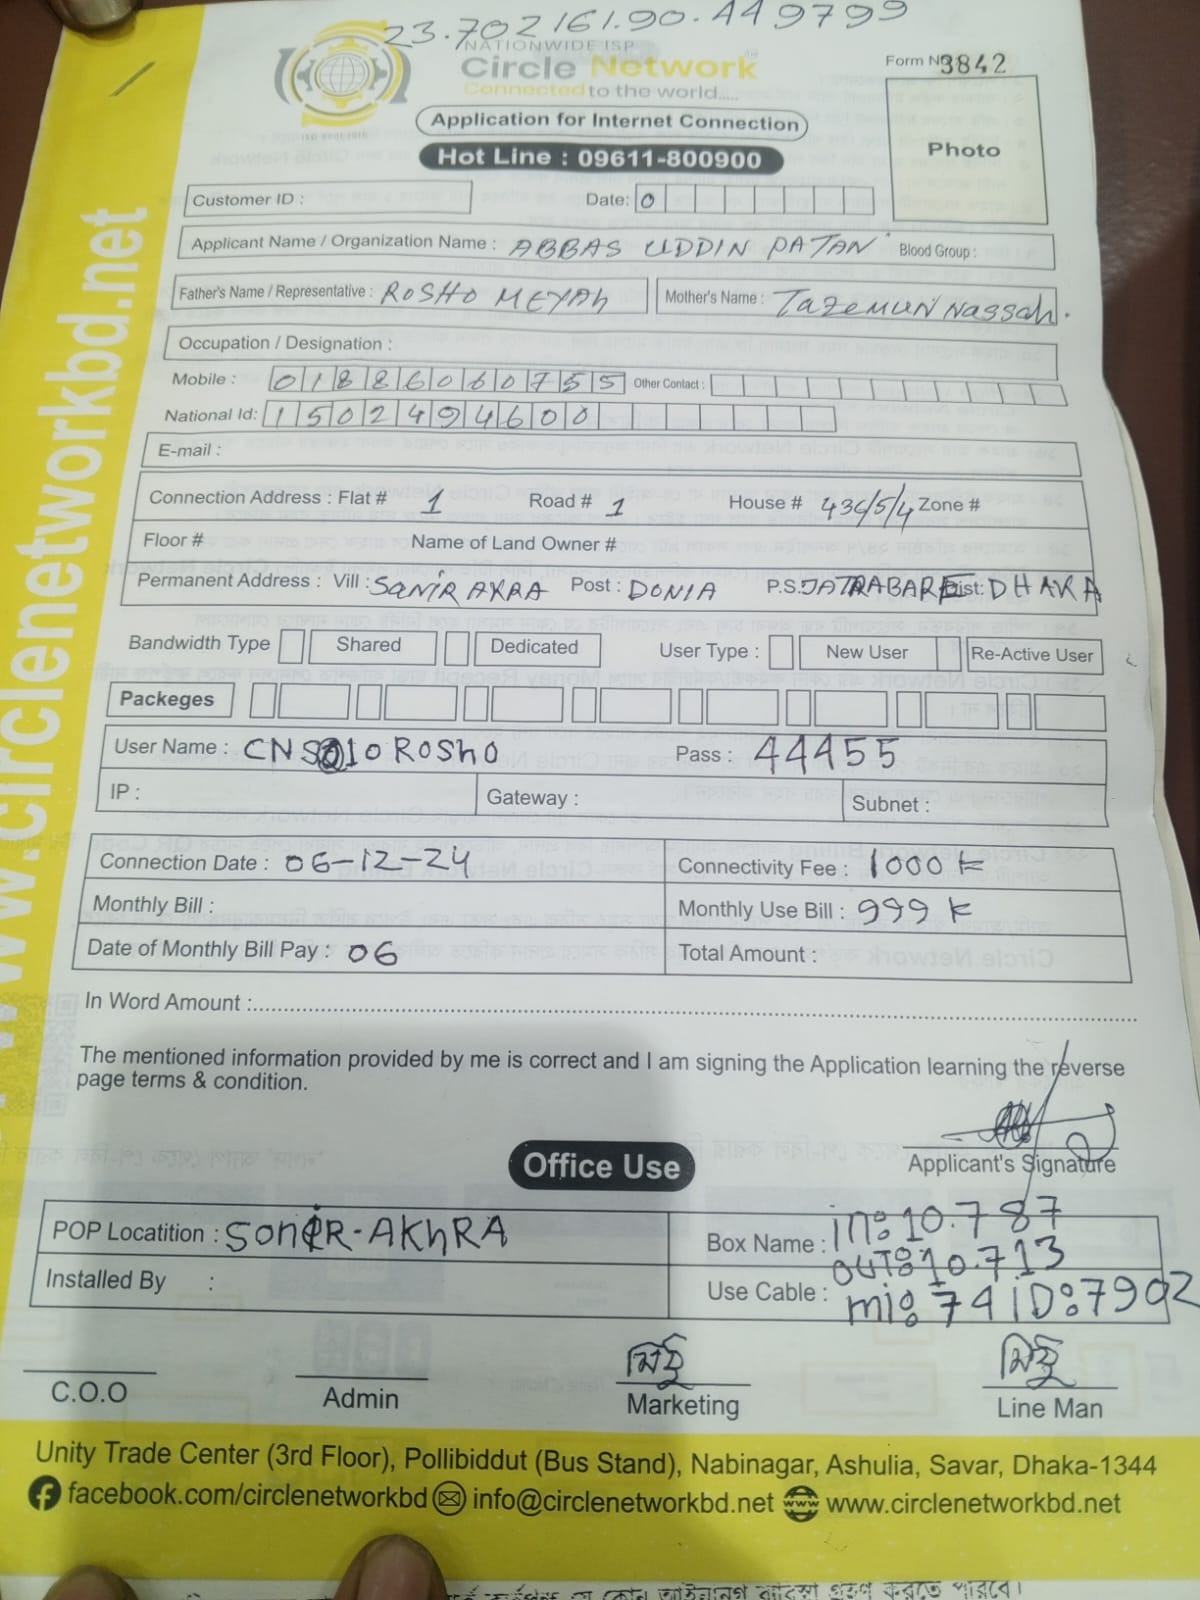 23.702161.90.449799
NATIONWIDE ISP
Circle Network
Connected to the world.....
Form No 3842
Application for Internet Connection
Photo
Hot Line : 09611-800900
Customer ID : Date: 0
Applicant Name / Organization Name : ABBAS UDDIN PATAN Blood Group :
Father's Name / Representative : ROSHO MEYAh Mother's Name : TazeMUN Nassah.
Occupation / Designation :
Mobile : 01886060755 Other Contact :
National Id: 1502494600
E-mail :
Connection Address : Flat # 1 Road # 1 House # 436/5/4 Zone #
Floor # Name of Land Owner #
Permanent Address : Vill : SANIR AKRA Post : DONIA P.S. JATRABARE Dist: DHAKA
Bandwidth Type Shared Dedicated User Type : New User Re-Active User
Packeges
User Name : CNS010ROSHO Pass : 44455
IP : Gateway : Subnet :
Connection Date : 06-12-24 Connectivity Fee : 1000 K
Monthly Bill : Monthly Use Bill : 999 K
Date of Monthly Bill Pay : 06 Total Amount :
In Word Amount :
The mentioned information provided by me is correct and I am signing the Application learning the reverse
page terms & condition.
Applicant's Signature
Office Use
POP Locatition : SONIR-AKHRA Box Name : in: 10.787
OUT: 10.713
Installed By : Use Cable : mi: 74 iD: 7902
C.O.O Admin Marketing Line Man
Unity Trade Center (3rd Floor), Pollibiddut (Bus Stand), Nabinagar, Ashulia, Savar, Dhaka-1344
facebook.com/circlenetworkbd info@circlenetworkbd.net www.circlenetworkbd.net
www.circlenetworkbd.net